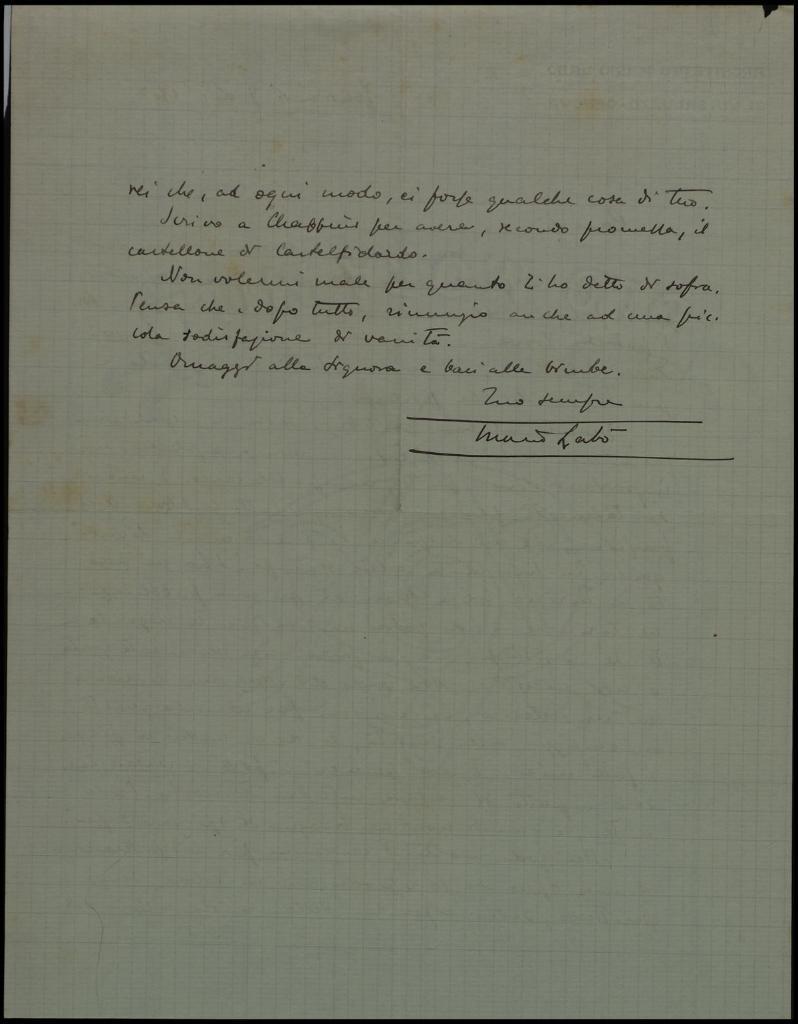 rei che, ad ogni modo, ci fosse qualche cosa di tuo.
Scrivo a per avere, secondo promessa, il
cartellone di Castelfidardo.
Non volermi male per quanto ti ho detto di sopra.
Pensa che, dopo tutto, rinunzio anche ad una pic-
cola sodisfazione di vanità.
Omaggi alla Signora e baci alle bimbe.
Tuo sempre
Mario Labò